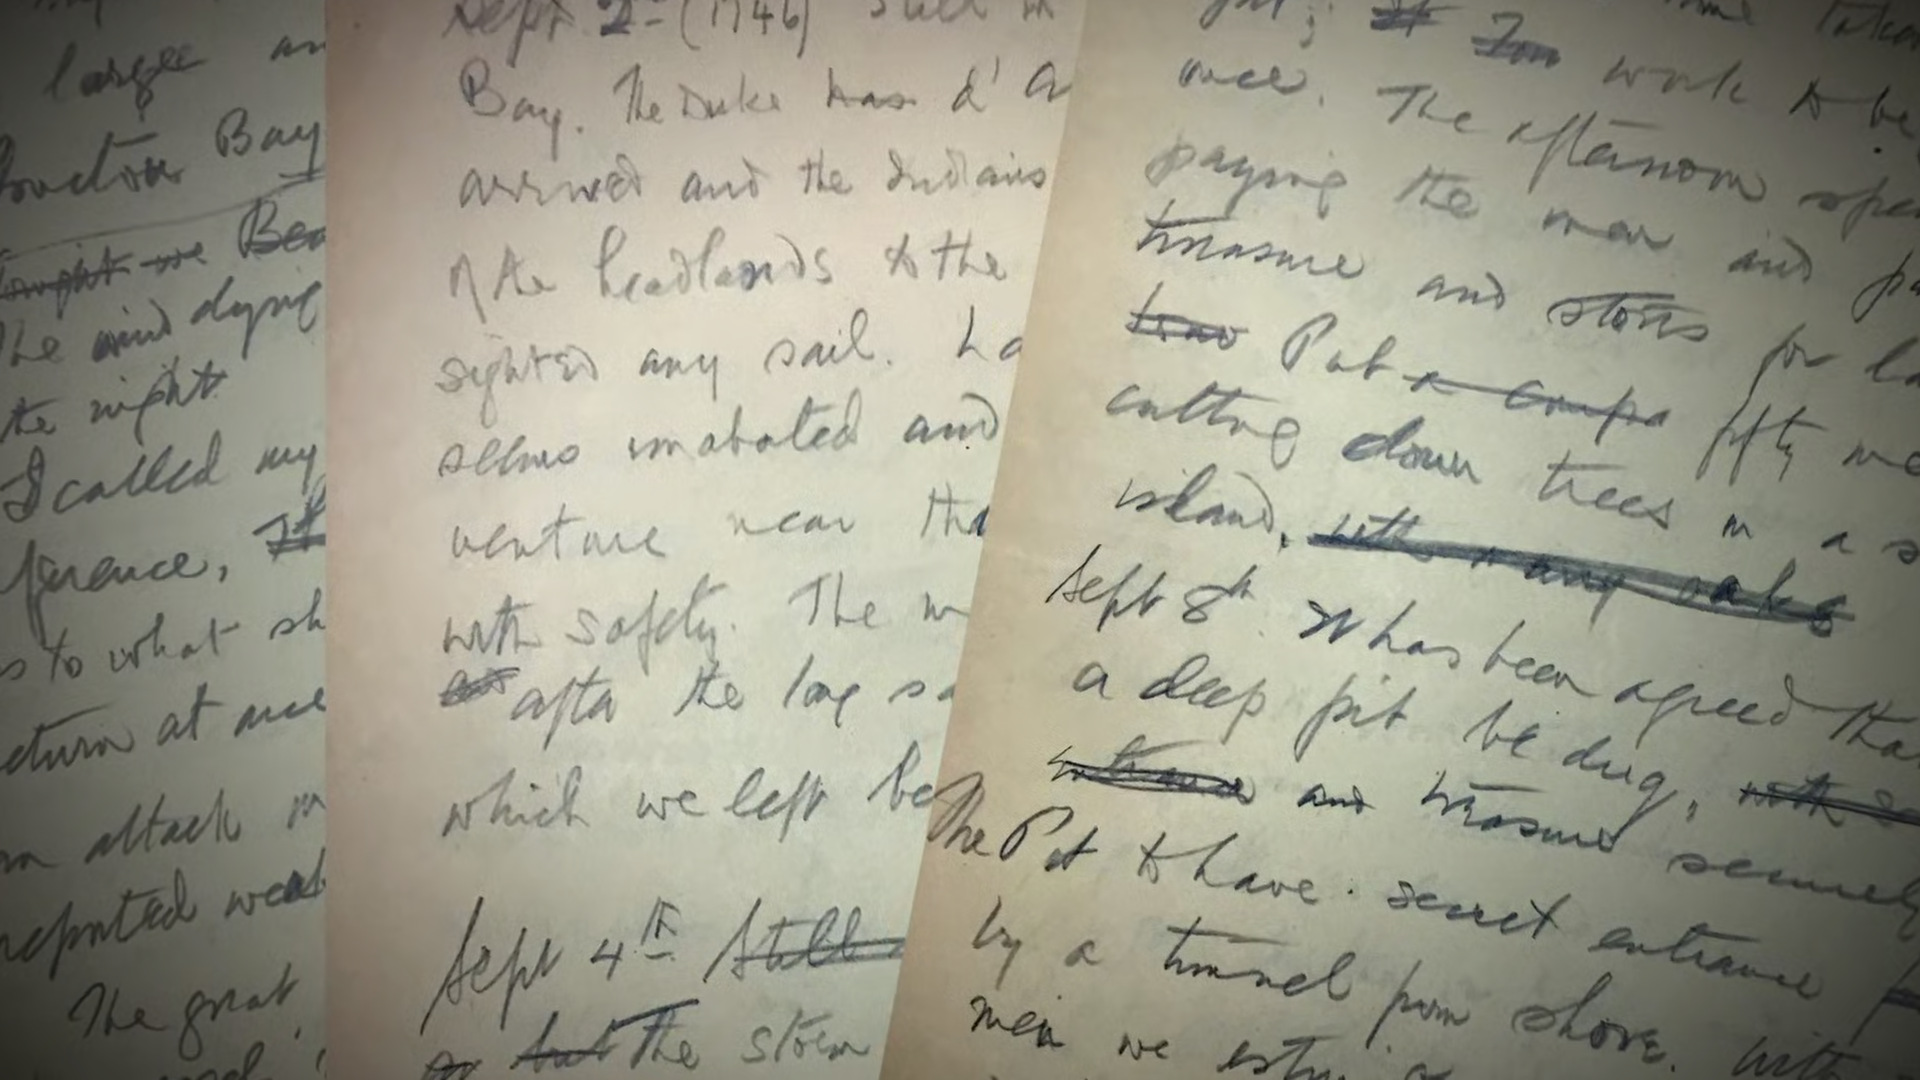 large an
Bay
~~Tonight we~~ Bea
The wind dying
the night
I called my
ference, ~~It~~
s to what sh
eturn at once
an attack in
reported weak
The great
Sept 2nd (1746) Still in
Bay. The Duke ~~has~~ d' A
arrived and the Indians
of the headlands to the
sighted any sail.
seems unabated and
venture near the
with safety. The
after the long
which we left be
Sept 4th ~~Still~~
~~but~~ The storm
~~It~~ work to be
once. The afternoon spen
paying the men and
treasure and stores for
Put ~~a~~ fifty me
cutting down trees in a s
island, ~~with many oaks~~
Sept 8th. It has been agreed tha
a deep pit be dug,
and treasure securely
The Pit to have secret entrance
by a tunnel from shore.
men we